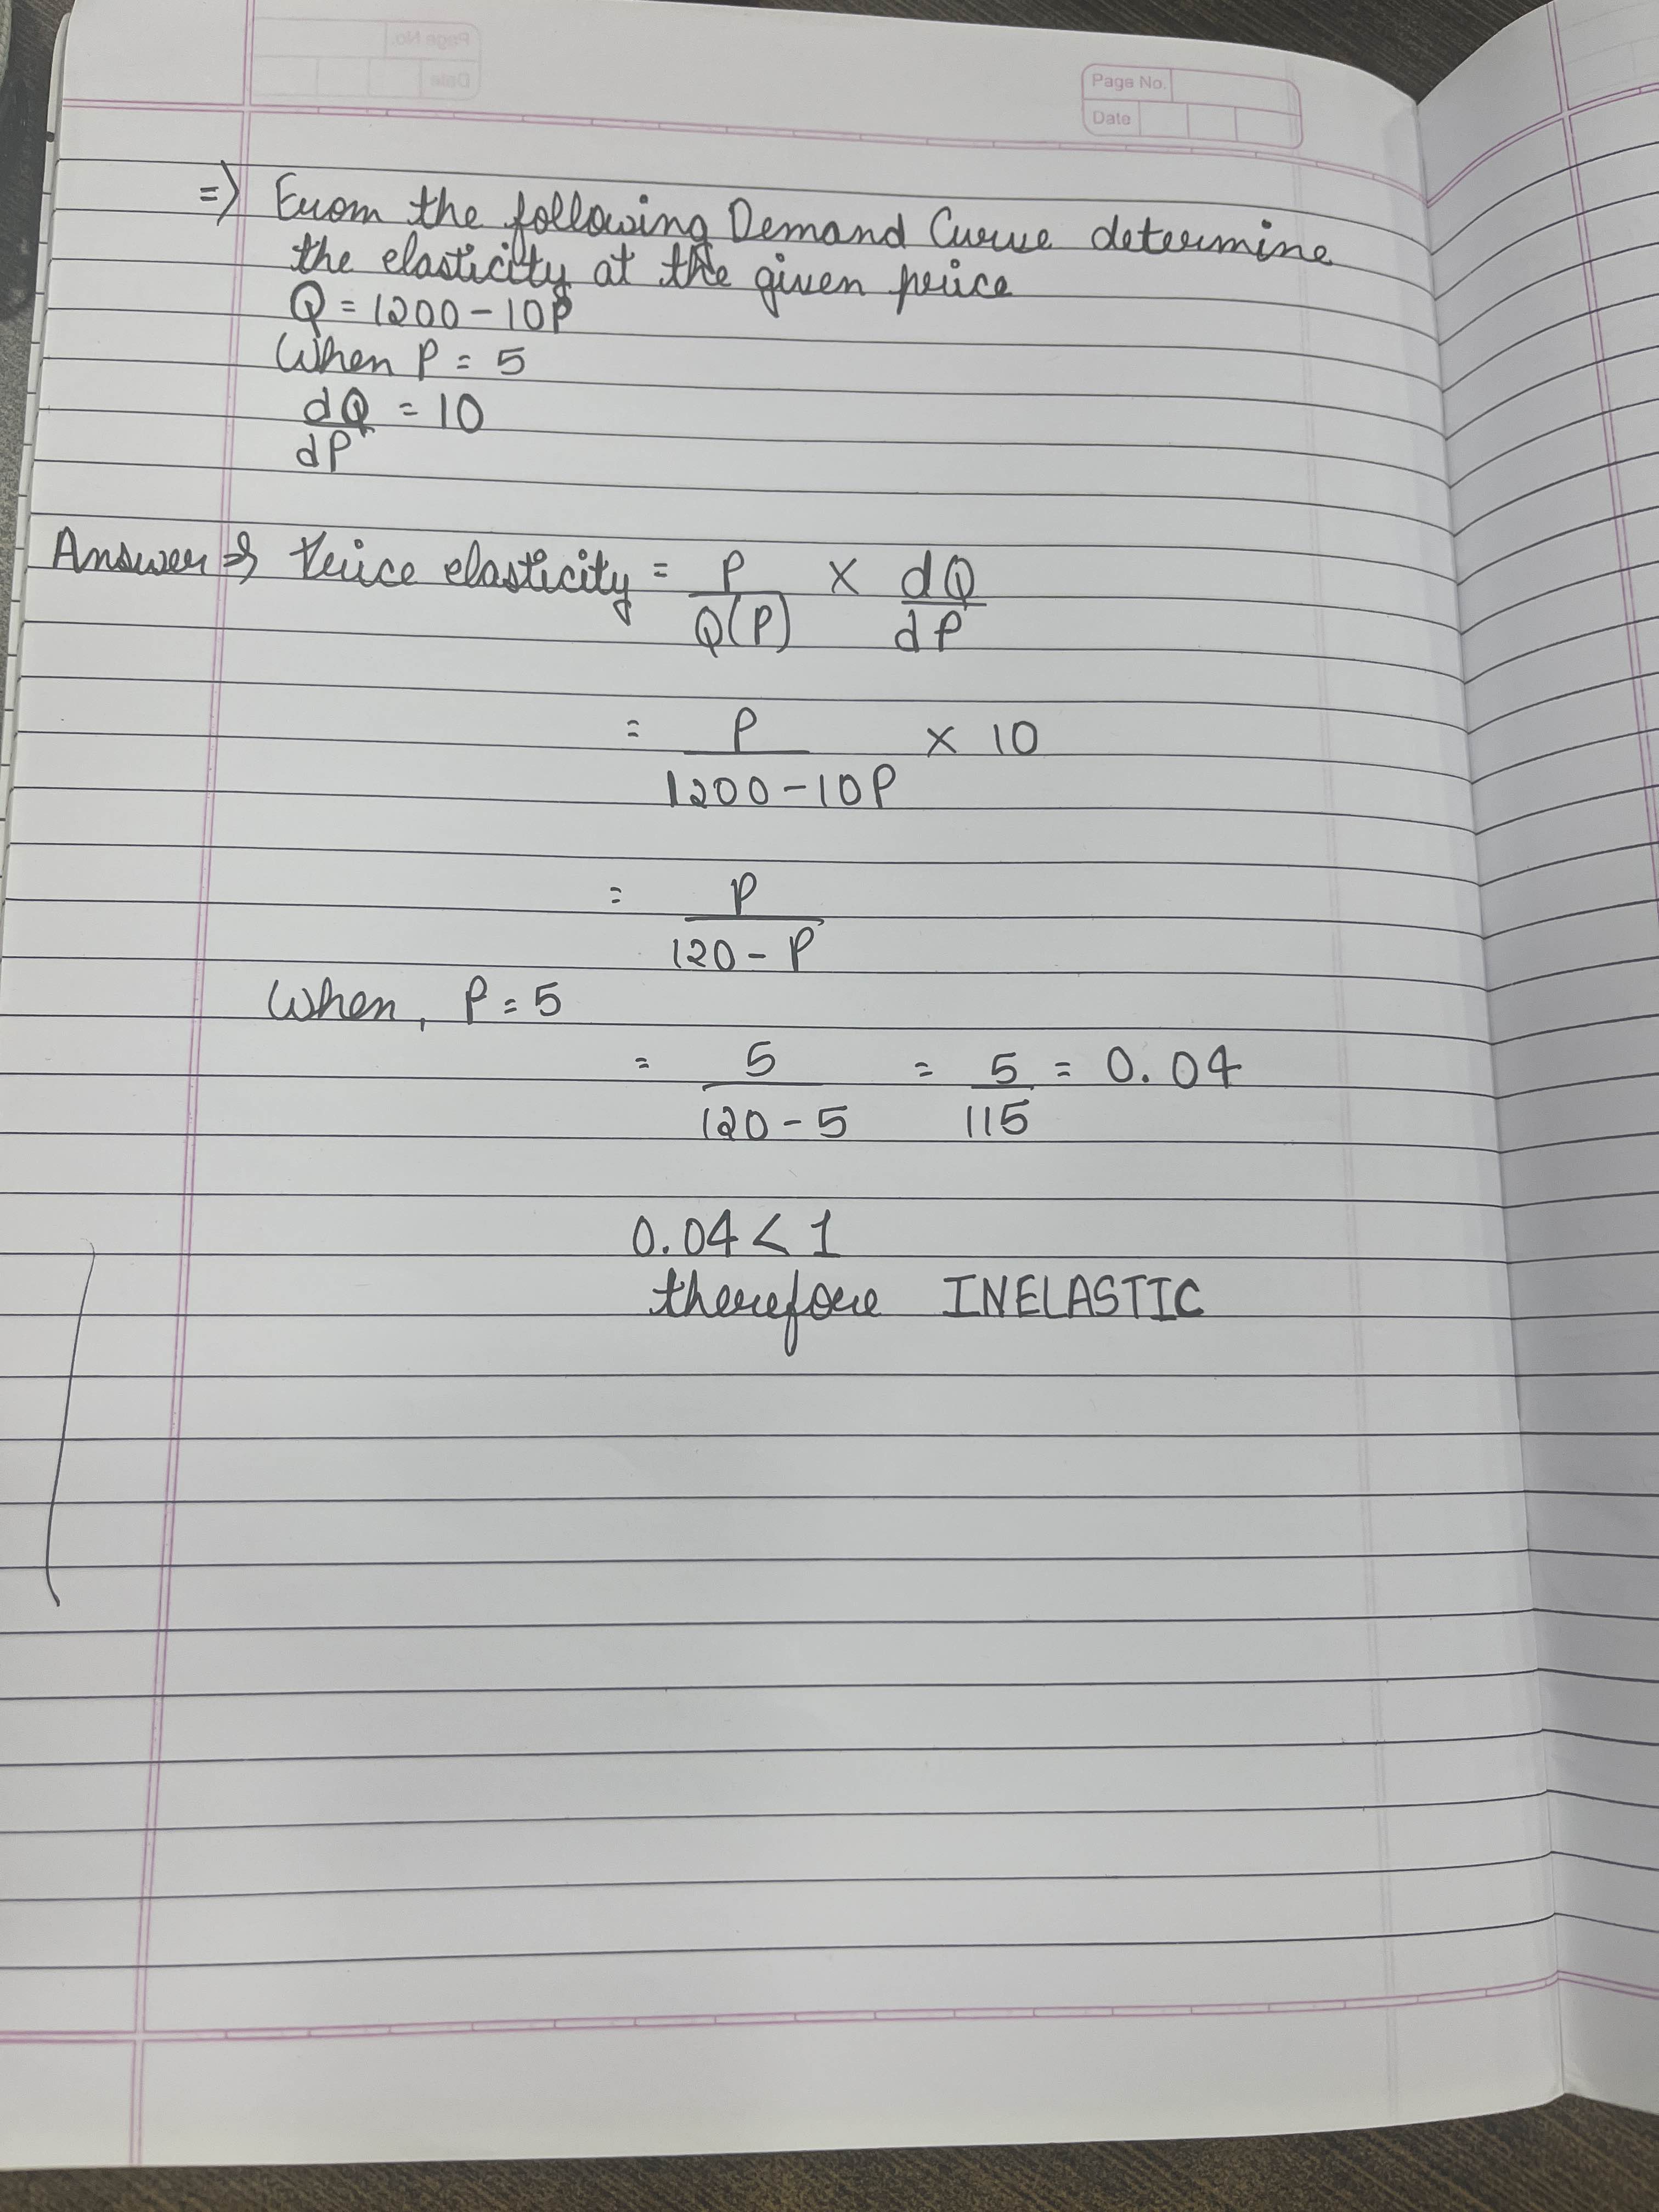 Page No.
Date
=> From the following Demand Curve determine
the elasticity at the given price
Q = 1200 - 10P
When P = 5
dQ = 10
dP
Answer => Price elasticity = P × dQ
Q(P) dP
= P × 10
1200 - 10P
= P
120 - P
When, P = 5
= 5 = 5 = 0.04
120 - 5 115
0.04 < 1
therefore INELASTIC